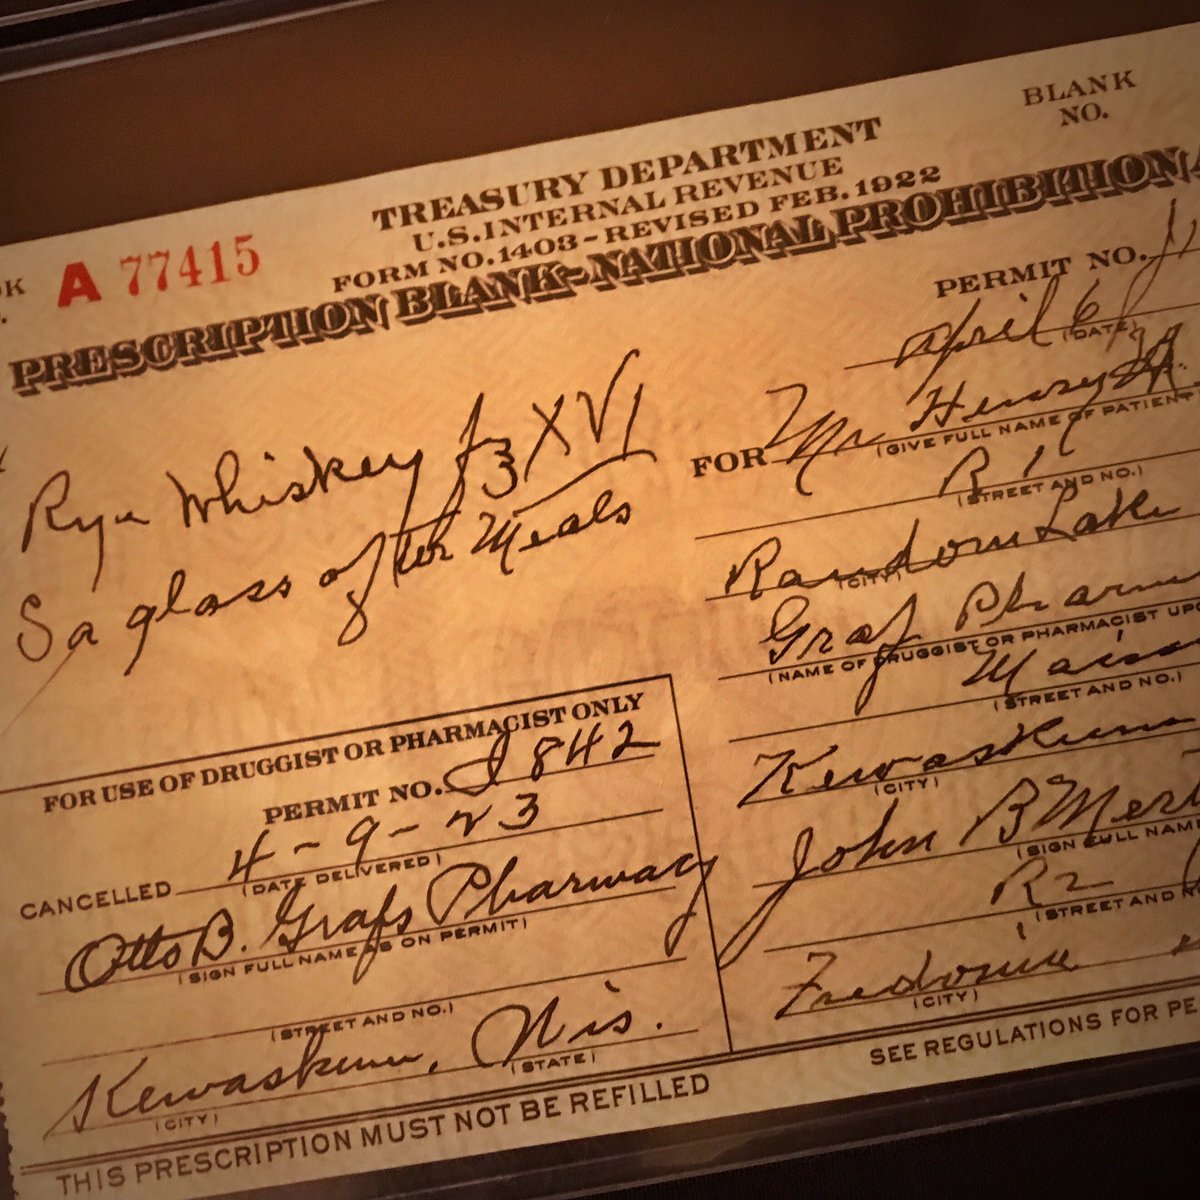 BLANK
NO.
TREASURY DEPARTMENT
U.S. INTERNAL REVENUE
FORM NO. 1403 - REVISED FEB. 1922
A 77415
PRESCRIPTION BLANK - NATIONAL PROHIBITION
PERMIT NO.
April 6
(DATE)
Rye Whiskey XVI
S a glass after Meals
FOR Mr Henry
(GIVE FULL NAME OF PATIENT
R 1
(STREET AND NO.)
Random Lake
(CITY)
Graf Pharm
(NAME OF DRUGGIST OR PHARMACIST UPO
(STREET AND NO.)
Kewaskum
(CITY)
John B
(SIGN FULL NAME
R2
(STREET AND N
(CITY)
SEE REGULATIONS FOR PE
FOR USE OF DRUGGIST OR PHARMACIST ONLY
PERMIT NO. 842
CANCELLED 4-9-23
(DATE DELIVERED)
Otto B. Grafs Pharmacy
(SIGN FULL NAME AS ON PERMIT)
(STREET AND NO.)
Kewaskum, Wis.
(CITY) (STATE)
THIS PRESCRIPTION MUST NOT BE REFILLED